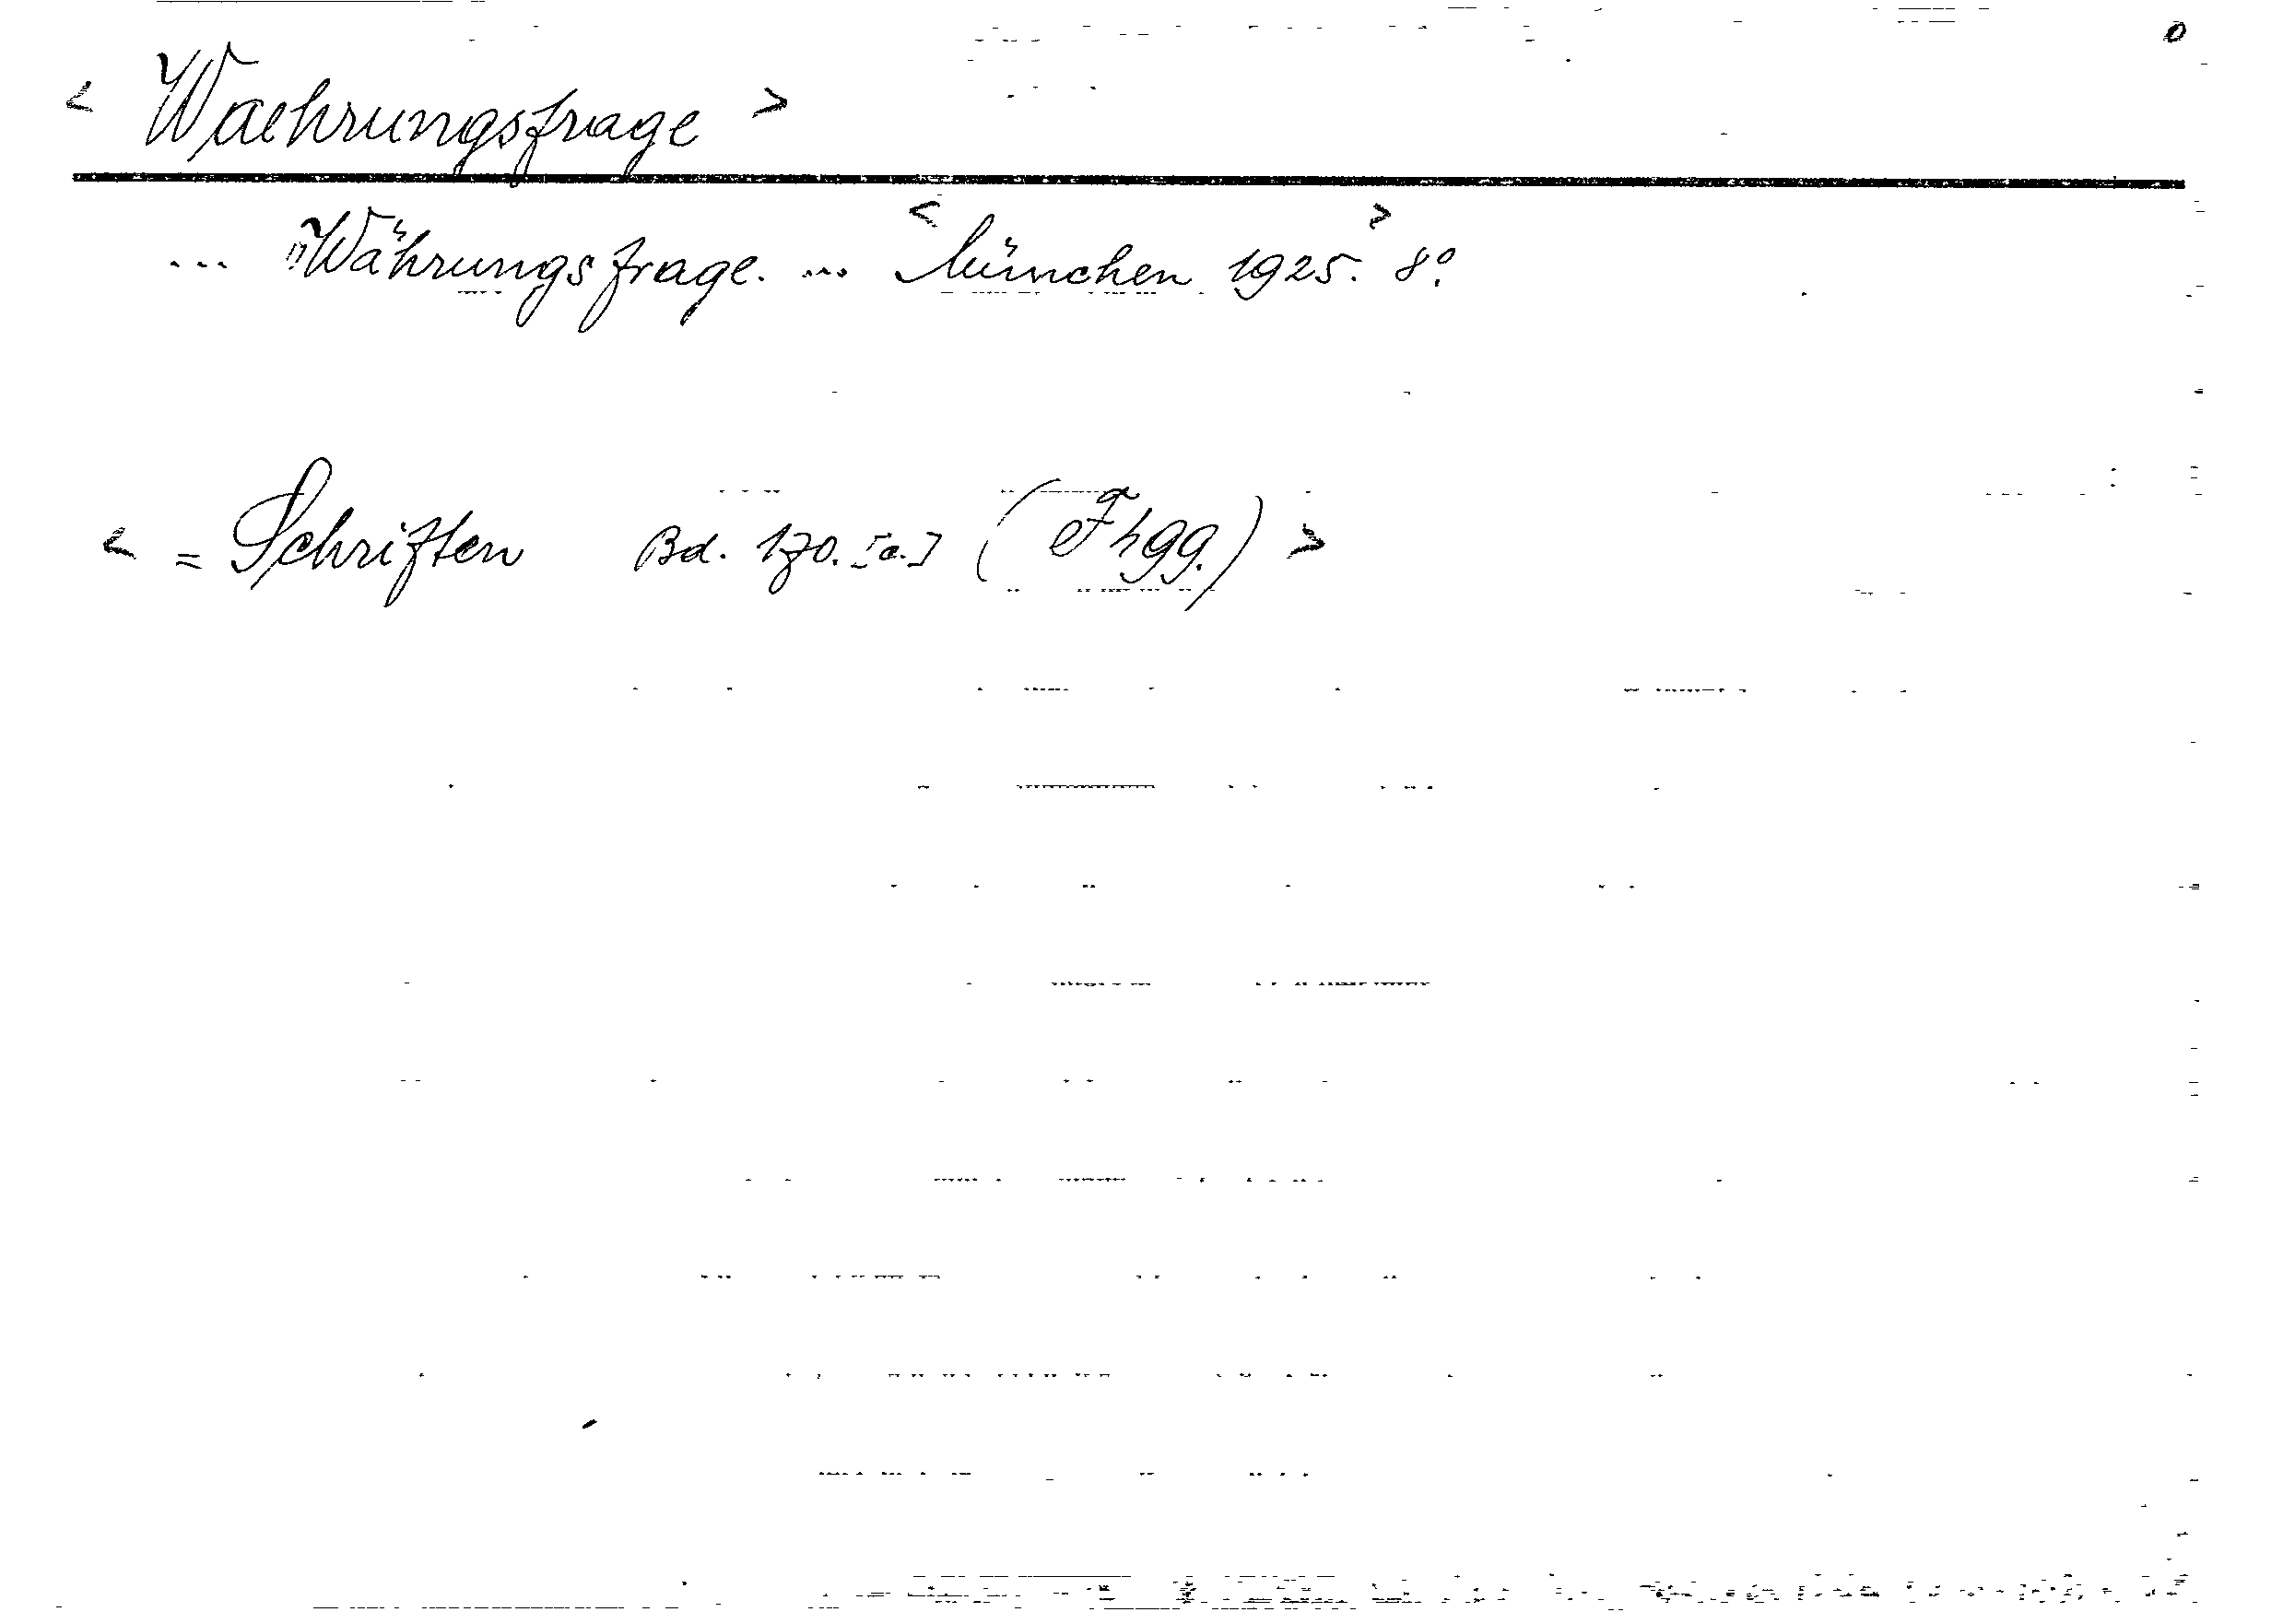 0
< Waehrungsfrage >
... "Währungsfrage. ... <München 1925.> 8°.
< = Schriften Bd. 170. [a.] (Fhgg.) >